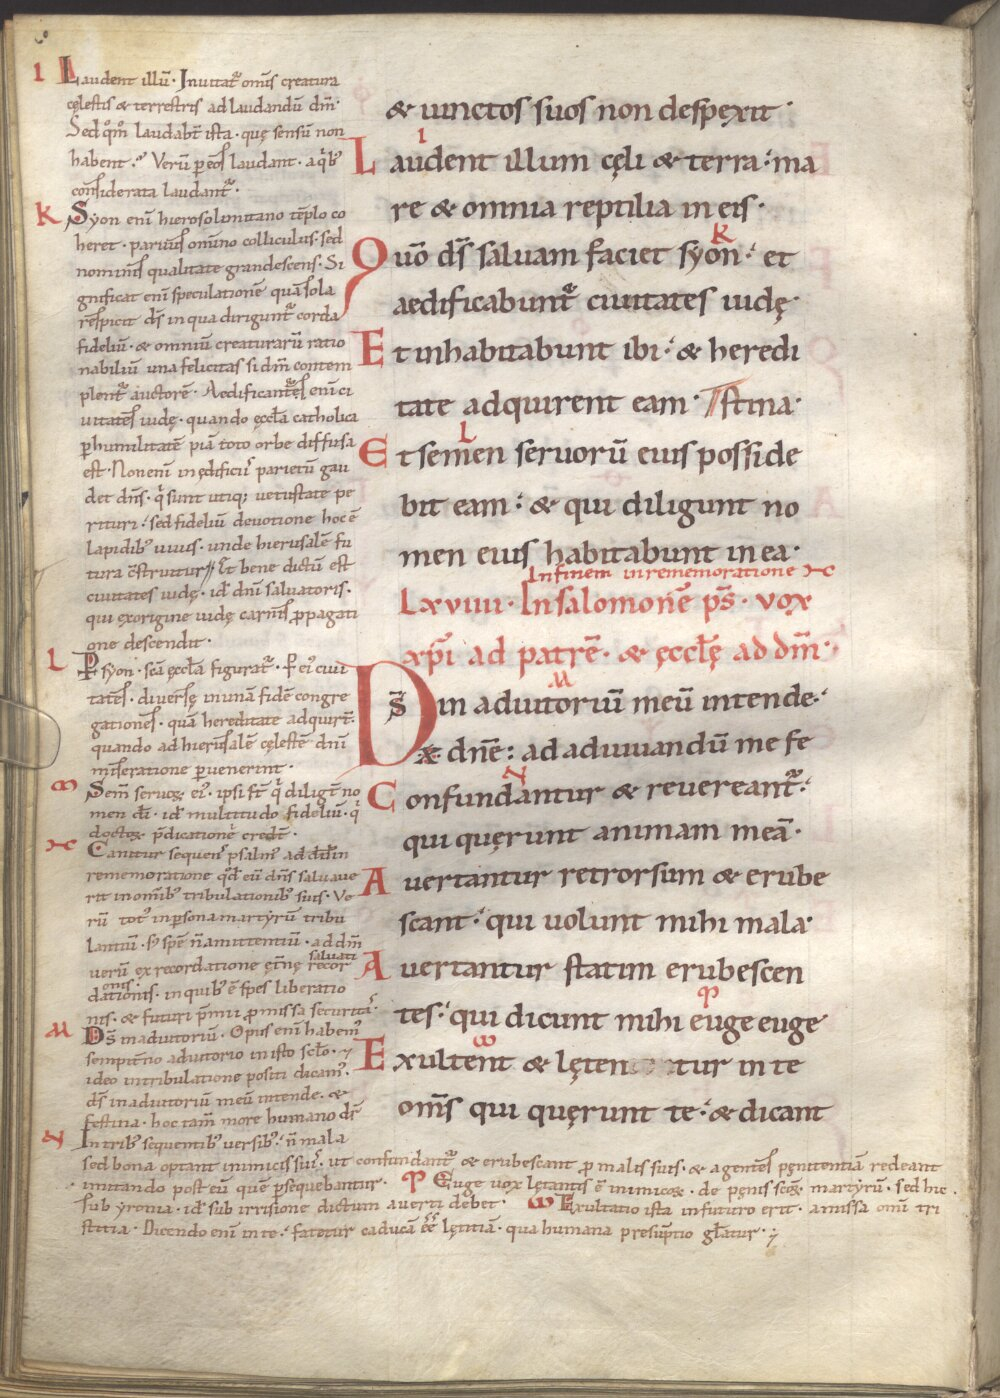 Laudent illū· Inuitat᷑ om̅is creatura
cęlestis & terrestris ad laudandū dm̅·
Sed qm̅ laudabt̅ ista· quę sensū non
habent· Verū p eos laudant· a qb᷒
considerata laudant᷑·
Syon eni̅ hierosolimitano te̅plo co
heret· paruus omnino colliculus· sed
nominis qualitate grandescens· Si
gnificat eni̅ speculatione̅ qua̅ sola
respicit ds̅ in qua dirigunt᷑ corda
fideliu̅· & omniu̅ creaturaru̅ ratio
nabiliu̅ una felicitas si dm̅ contem
plent᷑ auctore̅· Aedificant᷑ eni̅ ci
uitates iudę· quando ęccła catholica
p humilitate̅ pia̅ toto orbe diffusa
est· Non eni̅ in ędificiis parietu̅ gau
det dn̅s· q sunt utiq; uetustate pe
rituri· sed fideliu̅ deuotione hoc e̅
lapidib᷒ uiuis· unde hierusale̅ fu
tura co̅struitur Et bene dictu̅ est
ciuitates iudę· id dn̅i saluatoris·
qui ex origine iudę carnis ppagati
one descendit·
P syon· sc̅a ęccła figurat᷑· P ei᷒ ciui
tates· diuersę in una̅ fide̅ congre
gationes· qua̅ hereditate adquirt̅·
quando ad hierusale̅ cęleste̅ dn̅i
miseratione puenerint·
Sem̅ seruoꝝ ei᷒· ipsi st̅ q diligt̅ no
men di̅· id multitudo fideliu̅· q
doctoꝝ p̅dicationi credt̅·
Canitur sequens psalm᷒ ad dauid in
rememoratione qd eu̅ dn̅s saluaue
rit in omib᷒ tribulationib᷒ suis· Ve
ru̅ tot᷒ in persona martyru̅ tribu
lantiu̅· s; spe̅ n̅ amittentiu̅· ad dm̅
saluati
ueru̅ ex recordatione ęt̅nę recor
onis·
dationis· in quib᷒ e̅ spes liberatio
nis· & futuri p̅mii pmissa securitas·
Ds̅ in adiutoriu̅· Opus eni̅ habem᷒
sempit̅no adiutorio in isto scło·
ideo in tribulatione positi dicam᷒·
ds̅ in adiutoriu̅ meu̅ intende· &
festina· hoc tam̅ more humano ds̅
In trib᷒ sequentib᷒ uersib᷒· n̅ mala
sed bona optant inimicis suis· ut confundant᷑ & erubescant p malis suis· & agentes pęnitentia̅ redeant
imitando post eu̅ que̅ psequebantur· P Euge uox lętantis e̅ inimicoꝝ· de pęnis scoꝝ martyru̅· sed hic
sub yronia· id sub irrisione dictum auerti debet· Exultatio ista in futuro erit· amissa omi tri
stitia· Dicendo eni̅ in te· fatetur caduca̅ e̅e̅ lętitia̅· qua humana presu̅ptio glat̅ur·
& uinctos suos non despexit·
Laudent illum cęli & terra· ma
re & omnia reptilia in eis·
Quo̅ ds̅ saluam faciet syon· et
aedificabunt᷑ ciuitates iudę·
Et inhabitabunt ibi· & heredi
tate adquirent eam· stina·
Et semen seruoru̅ eius posside
bit eam· & qui diligunt no
men eius habitabunt in ea·
In finem in rememoratione
Lxviiii· In salomone̅ ps̅· vox
xp̅i ad patre̅· & ęccłę ad dm̅·
Ds̅ in adiutoriu̅ meu̅ intende·
dn̅e· ad adiuuandu̅ me fe
Confundantur & reuereant᷑·
qui quęrunt animam mea̅·
Auertantur retrorsum & erube
scant· qui uolunt mihi mala·
Auertantur statim erubescen
tes· qui dicunt mihi euge euge
Exultent & lęten tur in te
om̅s qui quęrunt te· & dicant